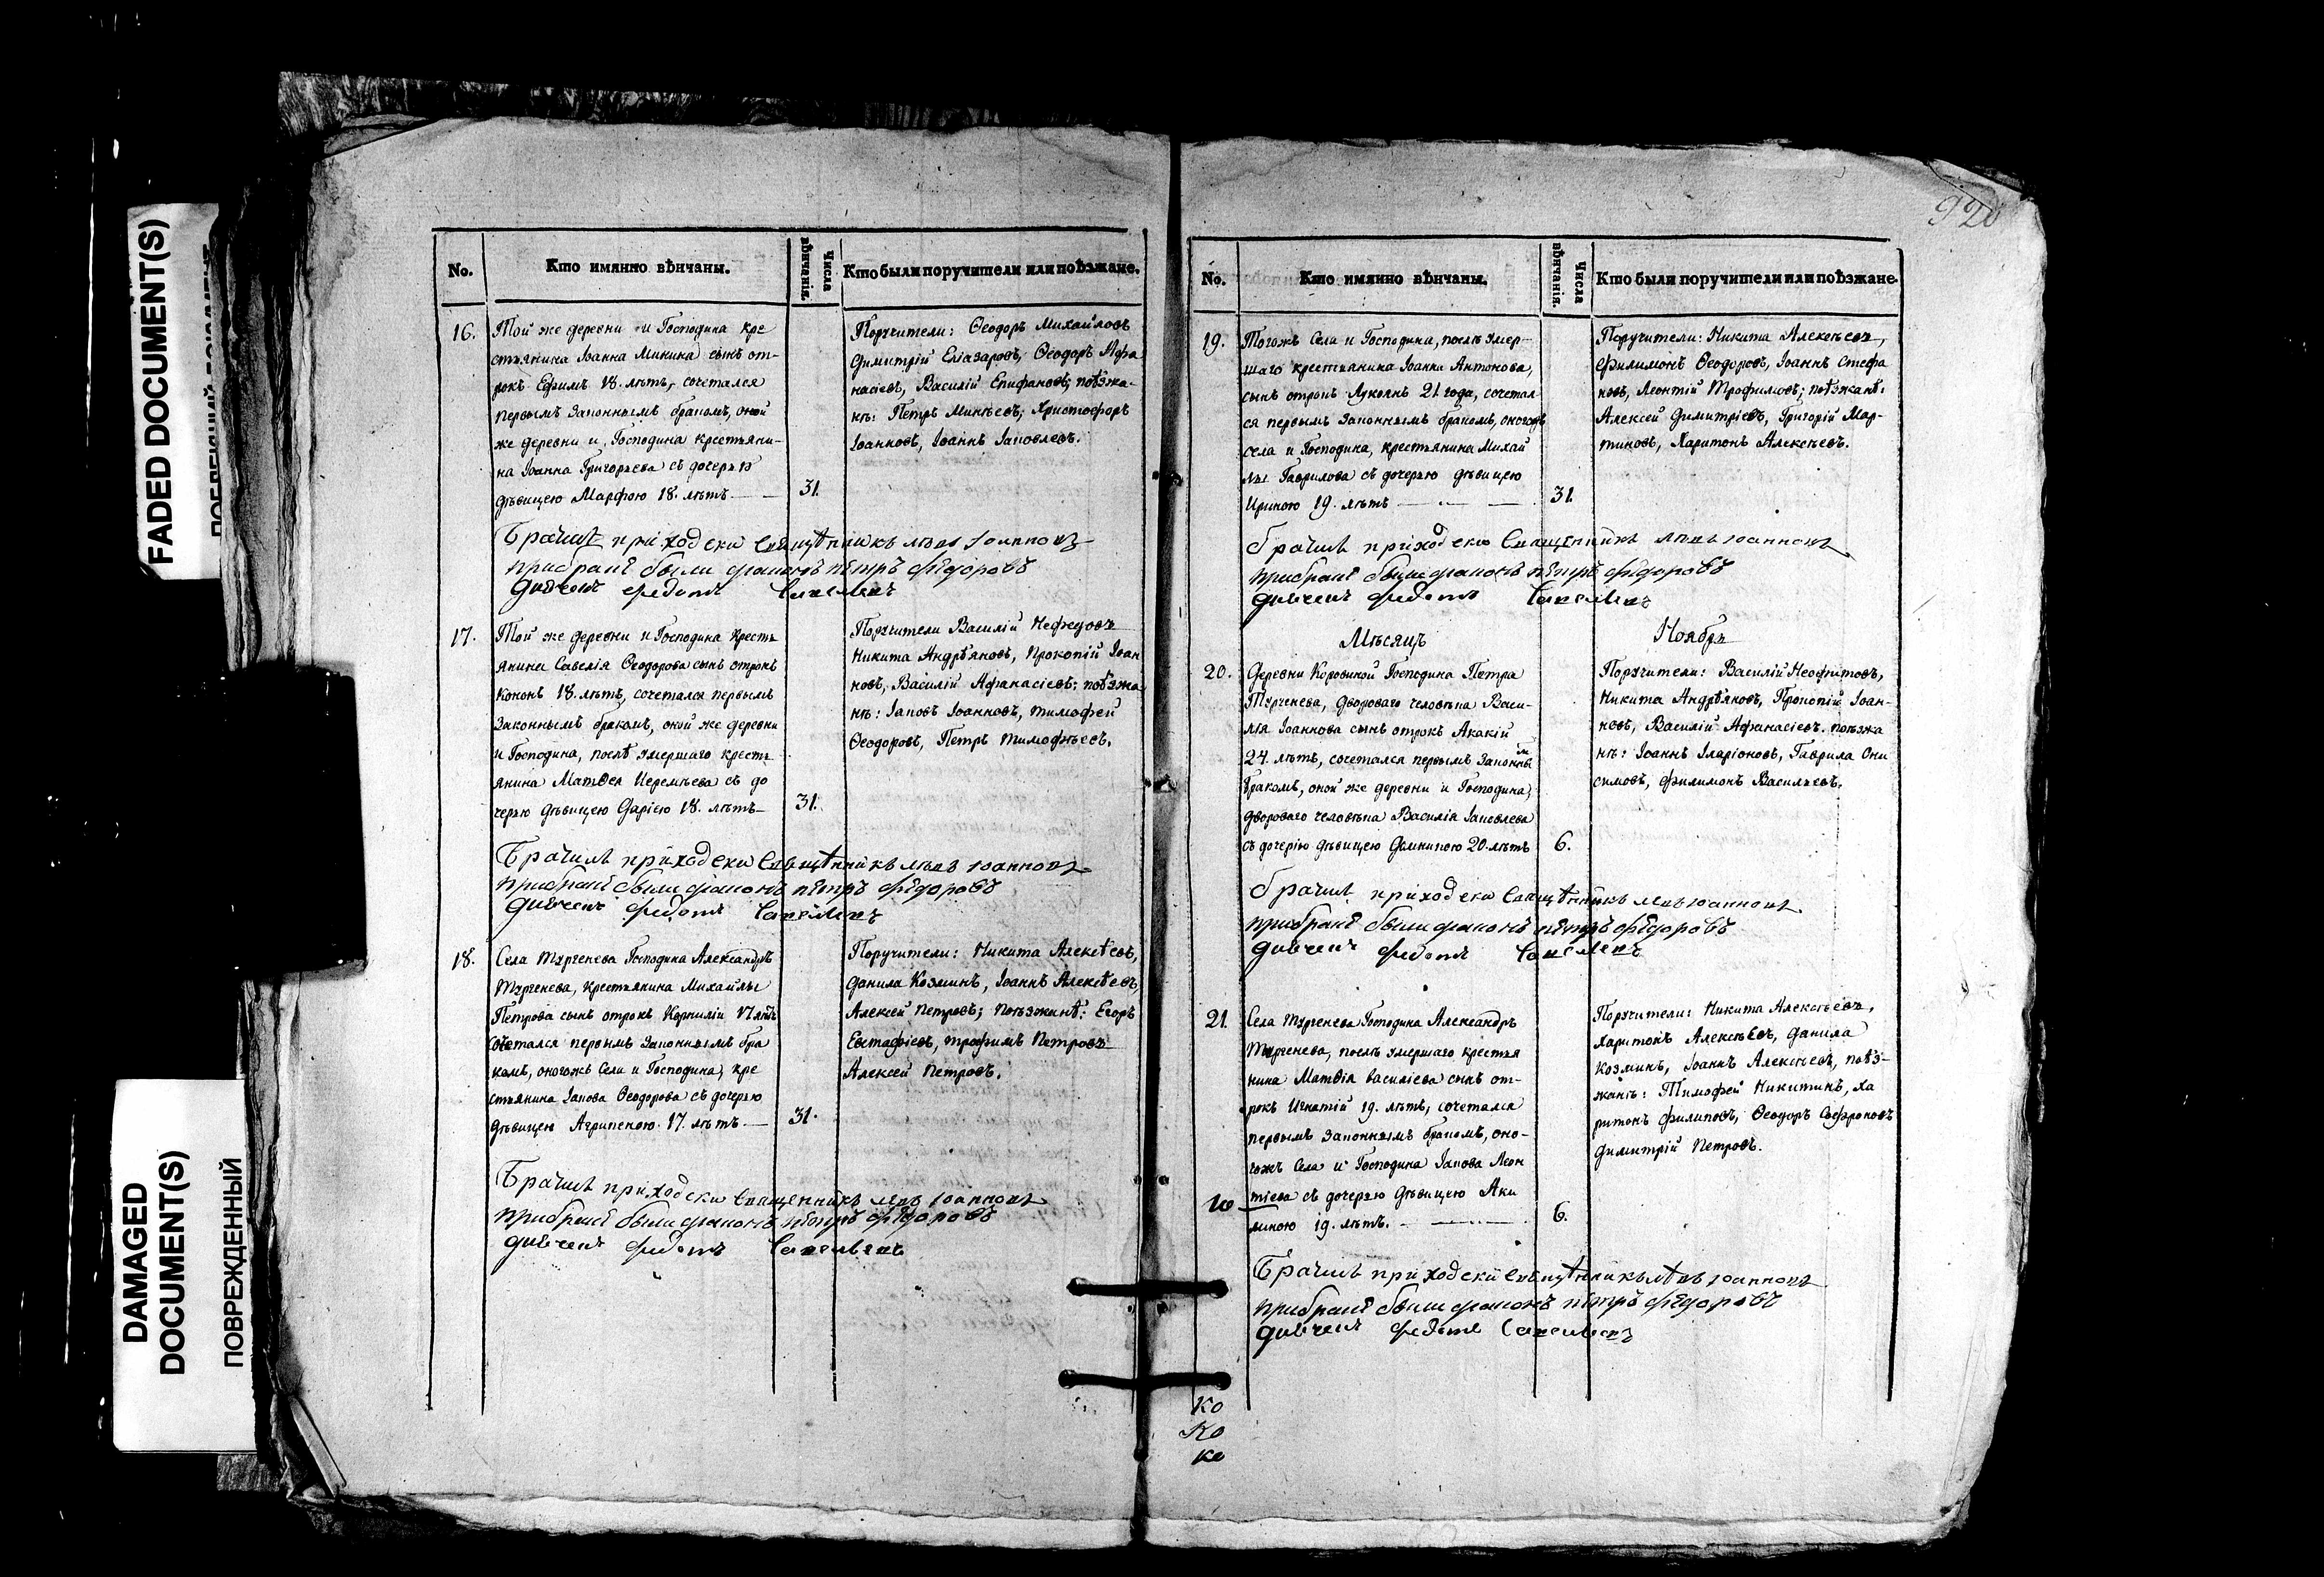 FADED DOCUMENT(S)
DAMAGED
DOCUMENT(S)
ПОВРЕЖДЕННЫЙ
No.
Кто имянно вѣнчаны.
Числа
вѣнчанія.
Кто были поручители или поѣзжане.
16.
Той же деревни и Господина кре
стьянина Іоанна Минина сынъ от-
рокъ Ефимъ 18. лѣтъ, сочетался
первымъ законнымъ бракомъ, оной
же деревни и Господина крестьяни-
на Іоанна Григорьева съ дочерью
дѣвицею Марфою 18. лѣтъ
31.
Поручители: Ѳеодоръ Михайловъ
Димитрій Еліазаровъ, Ѳеодоръ Афа
насіевъ, Василій Епифановъ; поѣзжа-
нѣ: Петръ Минѣевъ, Христофоръ
Іоанновъ, Іоаннъ Іаковлевъ.
Брачилъ приходски Священникъ левъ Іоанновъ
прибракѣ были діаконъ пѣтръ фѣдоровъ
Дьячекъ федотъ
17.
Той же деревни и Господина кресть
янина Савелія Ѳеодорова сынъ отрокъ
Кононъ 18. лѣтъ, сочетался первымъ
законнымъ бракомъ, оной же деревни
и Господина, послѣ умершаго кресть
янина Матѳея Иеремѣева съ до
черью дѣвицею Даріею 18. лѣтъ
31.
Поручители Василій Нефедовъ
Никита Андрѣяновъ, Прокопій Іоан
новъ, Василій Афанасіевъ; поѣзжа
нѣ: Іаковъ Іоанновъ, Тимофей
Ѳеодоровъ, Петръ Тимофѣевъ.
Брачилъ приходски Священникъ левъ Іоанновъ
прибракѣ были діаконъ пѣтръ фѣдоровъ
Дьячекъ федотъ
18.
Села Тургенева Господина Александръ
Тургенева, крестьянина Михайлы
Петрова сынъ отрокъ Корнилій 17 лѣтъ
сочетался первымъ законнымъ бра
комъ, оногожъ Села и Господина, кре
стьянина Іакова Ѳеодорова съ дочерью
дѣвицею Агрипеною 17. лѣтъ
31.
Поручители: Никита Алексѣевъ,
Данила Козминъ, Іоаннъ Алексѣевъ
Алексей Петровъ; поѣзжанѣ: Егоръ
Евстафіевъ, Трофимъ Петровъ
Алексей Петровъ.
Брачилъ приходски Священникъ левъ Іоанновъ
прибракѣ были діаконъ пѣтръ фѣдоровъ
Дьячекъ федотъ
920
No.
Кто имянно вѣнчаны.
Числа
вѣнчанія.
Кто были поручители или поѣзжане.
19.
Тогожъ Села и Господина, послѣ умер-
шаго крестьянина Іоанна Антонова,
сынъ отрокъ Лукіянъ 21 года, сочетал-
ся первымъ законнымъ бракомъ, оногожъ
села и Господина, крестьянина Михай
лы Гаврилова съ дочерью дѣвицею
Ириною 19. лѣтъ
31.
Поручители: Никита Алексѣевъ,
Филимонъ Ѳеодоровъ, Іоаннъ Стефа
новъ, Леонтій Трофимовъ; поѣзжанѣ:
Алексей Димитріевъ, Григорій Мар-
тиновъ, Харитонъ Алексѣевъ.
Брачилъ приходски Священникъ левъ Іоанновъ
прибракѣ были діаконъ пѣтръ фѣдоровъ
Дьячекъ федотъ
Мѣсяцъ
Ноябрь
20.
Деревни Коровиной Господина Петра
Тургенева, дворового человѣка Васи-
лія Іоаннова сынъ отрокъ Акакій
24. лѣтъ, сочетался первымъ законны
мъ
бракомъ, оной же деревни и Господина,
дворового человѣка Василія Іаковлева
съ дочерію дѣвицею Домникою 20. лѣтъ
6.
Поручители: Василій Неофитовъ,
Никита Андрѣяновъ, Прокопій Іоан-
новъ, Василій Афанасіевъ. поѣзжа
нѣ: Іоаннъ Іларіоновъ, Гаврила Они
симовъ, Филимонъ Васильевъ.
Брачилъ приходски Священникъ левъ Іоанновъ
прибракѣ были діаконъ пѣтръ фѣдоровъ
Дьячекъ федотъ
21.
Села Тургенева Господина Александръ
Тургенева, послѣ умершаго крестья
нина Матѳія Василіева сынъ от-
рокъ Игнатій 19. лѣтъ, сочетался
первымъ законнымъ бракомъ, оно-
гожъ Села и Господина Іакова Леон
тіева съ дочерью дѣвицею Аки
линою 19. лѣтъ.
6.
Поручители: Никита Алексѣевъ,
Харитонъ Алексѣевъ, Данила
Козминъ, Іоаннъ Алексѣевъ, поѣз-
жанѣ: Тимофей Никитинъ, Ха
ритонъ Филиповъ, Ѳеодоръ Софроновъ
Димитрій Петровъ.
Брачилъ приходски Священникъ левъ Іоанновъ
прибракѣ были діаконъ пѣтръ фѣдоровъ
Дьячекъ федотъ
ко
ко
ко